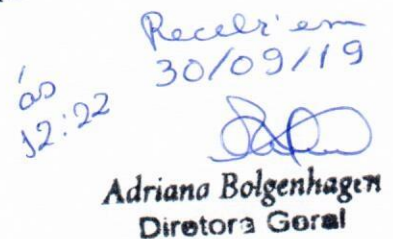 Recebi em
30/09/19
ás
12:22
Adriana Bolgenhagen
Diretora Geral